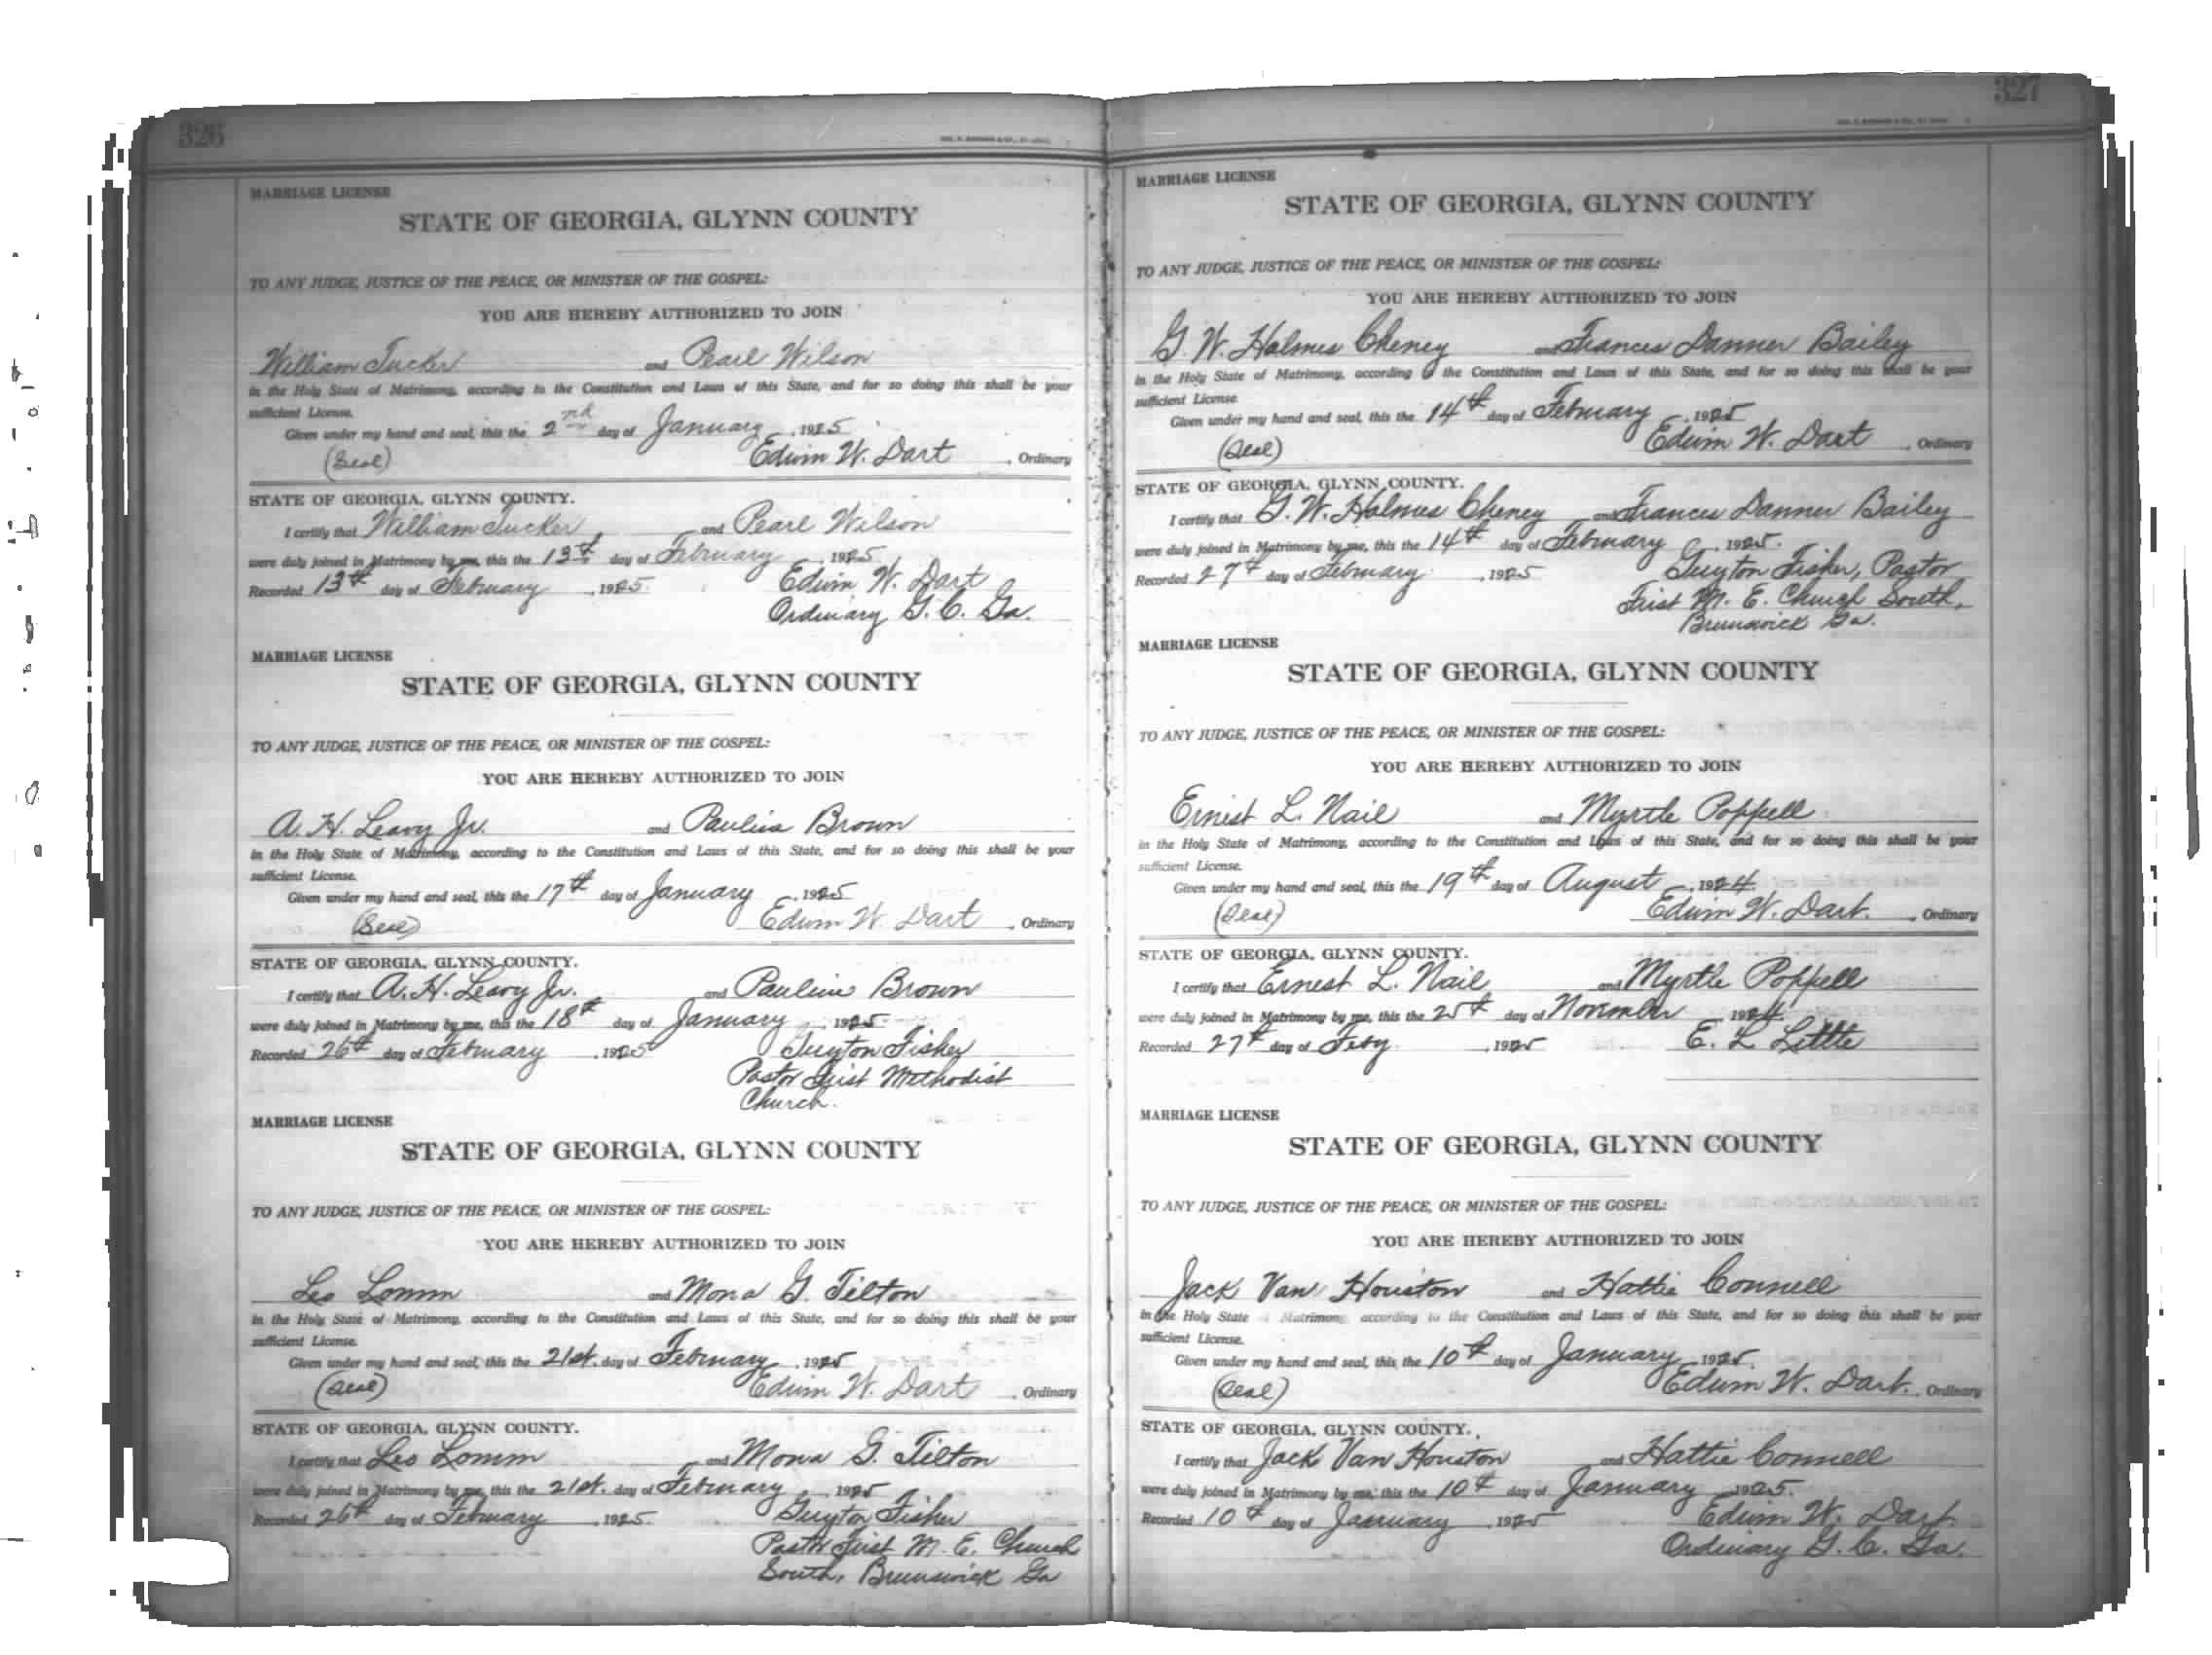 326
MARRIAGE LICENSE
STATE OF GEORGIA, GLYNN COUNTY
TO ANY JUDGE, JUSTICE OF THE PEACE, OR MINISTER OF THE GOSPEL:
YOU ARE HEREBY AUTHORIZED TO JOIN
William Tucker and Pearl Wilson
in the Holy State of Matrimony, according to the Constitution and Laws of this State, and for so doing this shall be your
sufficient License.
Given under my hand and seal, this the 2nd day of January, 1925
(Seal) Edwin W. Dart, Ordinary
STATE OF GEORGIA, GLYNN COUNTY.
I certify that William Tucker and Pearl Wilson
were duly joined in Matrimony by me, this the 13th day of February, 1925
Recorded 13th day of February, 1925. Edwin W. Dart
Ordinary G. C. Ga.
MARRIAGE LICENSE
STATE OF GEORGIA, GLYNN COUNTY
TO ANY JUDGE, JUSTICE OF THE PEACE, OR MINISTER OF THE GOSPEL:
YOU ARE HEREBY AUTHORIZED TO JOIN
A. H. Leavy Jr. and Pauline Brown
in the Holy State of Matrimony, according to the Constitution and Laws of this State, and for so doing this shall be your
sufficient License.
Given under my hand and seal, this the 17th day of January, 1925
(Seal) Edwin W. Dart, Ordinary
STATE OF GEORGIA, GLYNN COUNTY.
I certify that A. H. Leavy Jr. and Pauline Brown
were duly joined in Matrimony by me, this the 18th day of January, 1925.
Recorded 26th day of February, 1925 Guyton Fisher
Pastor First Methodist
Church.
MARRIAGE LICENSE
STATE OF GEORGIA, GLYNN COUNTY
TO ANY JUDGE, JUSTICE OF THE PEACE, OR MINISTER OF THE GOSPEL:
YOU ARE HEREBY AUTHORIZED TO JOIN
Leo Lomm and Mona G. Tilton
in the Holy State of Matrimony, according to the Constitution and Laws of this State, and for so doing this shall be your
sufficient License.
Given under my hand and seal, this the 21st. day of February, 1925
(Seal) Edwin W. Dart, Ordinary
STATE OF GEORGIA, GLYNN COUNTY.
I certify that Leo Lomm and Mona G. Tilton
were duly joined in Matrimony by me, this the 21st. day of February, 1925
Recorded 26th day of February, 1925. Guyton Fisher
Pastor First M. E. Church
South, Brunswick Ga
327
MARRIAGE LICENSE
STATE OF GEORGIA, GLYNN COUNTY
TO ANY JUDGE, JUSTICE OF THE PEACE, OR MINISTER OF THE GOSPEL:
YOU ARE HEREBY AUTHORIZED TO JOIN
G. W. Holmes Cheney and Frances Danner Bailey
in the Holy State of Matrimony, according to the Constitution and Laws of this State, and for so doing this shall be your
sufficient License.
Given under my hand and seal, this the 14th day of February, 1925
(Seal) Edwin W. Dart, Ordinary
STATE OF GEORGIA, GLYNN COUNTY.
I certify that G. W. Holmes Cheney and Frances Danner Bailey
were duly joined in Matrimony by me, this the 14th day of February, 1925.
Recorded 27th day of February, 1925 Guyton Fisher, Pastor
First M. E. Church South,
Brunswick Ga.
MARRIAGE LICENSE
STATE OF GEORGIA, GLYNN COUNTY
TO ANY JUDGE, JUSTICE OF THE PEACE, OR MINISTER OF THE GOSPEL:
YOU ARE HEREBY AUTHORIZED TO JOIN
Ernest L. Nail and Myrtle Poppell
in the Holy State of Matrimony, according to the Constitution and Laws of this State, and for so doing this shall be your
sufficient License.
Given under my hand and seal, this the 19th day of August, 1924
(Seal) Edwin W. Dart., Ordinary
STATE OF GEORGIA, GLYNN COUNTY.
I certify that Ernest L. Nail and Myrtle Poppell
were duly joined in Matrimony by me, this the 25th day of November, 1924
Recorded 27th day of Feby, 1925 E. L. Little
MARRIAGE LICENSE
STATE OF GEORGIA, GLYNN COUNTY
TO ANY JUDGE, JUSTICE OF THE PEACE, OR MINISTER OF THE GOSPEL:
YOU ARE HEREBY AUTHORIZED TO JOIN
Jack Van Houston and Hattie Connell
in the Holy State of Matrimony, according to the Constitution and Laws of this State, and for so doing this shall be your
sufficient License.
Given under my hand and seal, this the 10th day of January, 1925.
(Seal) Edwin W. Dart., Ordinary
STATE OF GEORGIA, GLYNN COUNTY.
I certify that Jack Van Houston and Hattie Connell
were duly joined in Matrimony by me, this the 10th day of January, 1925.
Recorded 10th day of January, 1925 Edwin W. Dart.
Ordinary G. C. Ga.